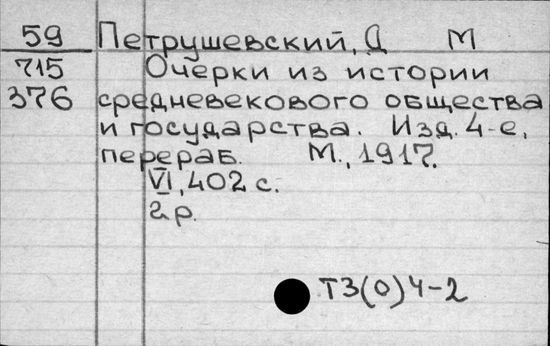 59 Петрушевский, Д М
715 Очерки из истории
376 средневекового общества
и государства. Изд. 4-е,
перераб. М., 1917.
VI, 402 с.
2 р.
Т3(0)4-2